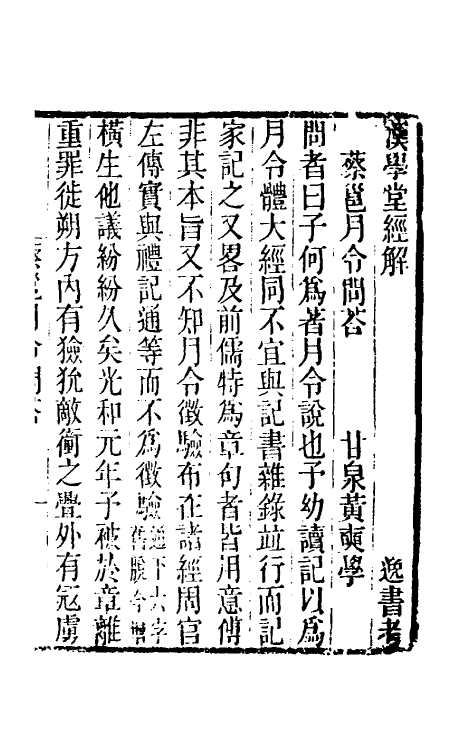 漢學堂經解 逸書考
蔡邕月令問荅 甘泉黃奭學
問者曰子何爲著月令說也予幼讀記以爲
月令體大經同不宜與記書雜錄並行而記
家記之又畧及前儒特爲章句者皆用意傅
非其本旨又不知月令徵驗布在諸經周官
左傳實與禮記通等而不爲徵驗通下六字舊脫今增
橫生他議紛紛久矣光和元年予被於章離
重罪徙朔方內有獫狁敵衝之舋外有寇虜
蔡邕月令問荅 一